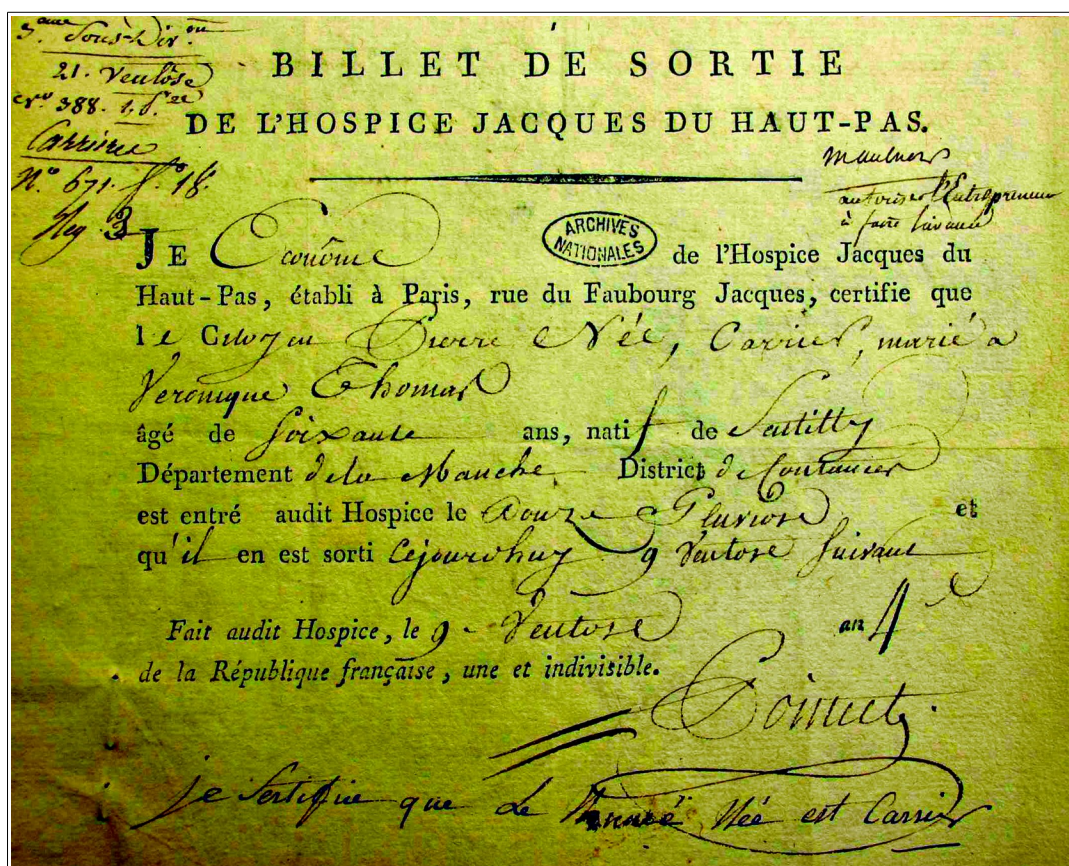 3.eme Sous-Div.on
21. Ventôse
388.
Carrière
N.o 671. f.o 18.
Reg. 3
BILLET DE SORTIE
DE L'HOSPICE JACQUES DU HAUT-PAS.
autoriser l'Entrepreneur
à faire
JE Econôme ARCHIVES NATIONALES de l'Hospice Jacques du
Haut-Pas, établi à Paris, rue du Faubourg Jacques, certifie que
le Citoyen Pierre Née, Carrier, marié a
Veronique Thomas
âgé de soixante ans, natif de
Département de la Manche District de Coutances
est entré audit Hospice le douze Pluviose et
qu'il en est sorti cejourdhuy 9 Ventose suivant
Fait audit Hospice, le 9 Ventose an 4e
de la République française, une et indivisible.
je sertifie que le Née est Carrier